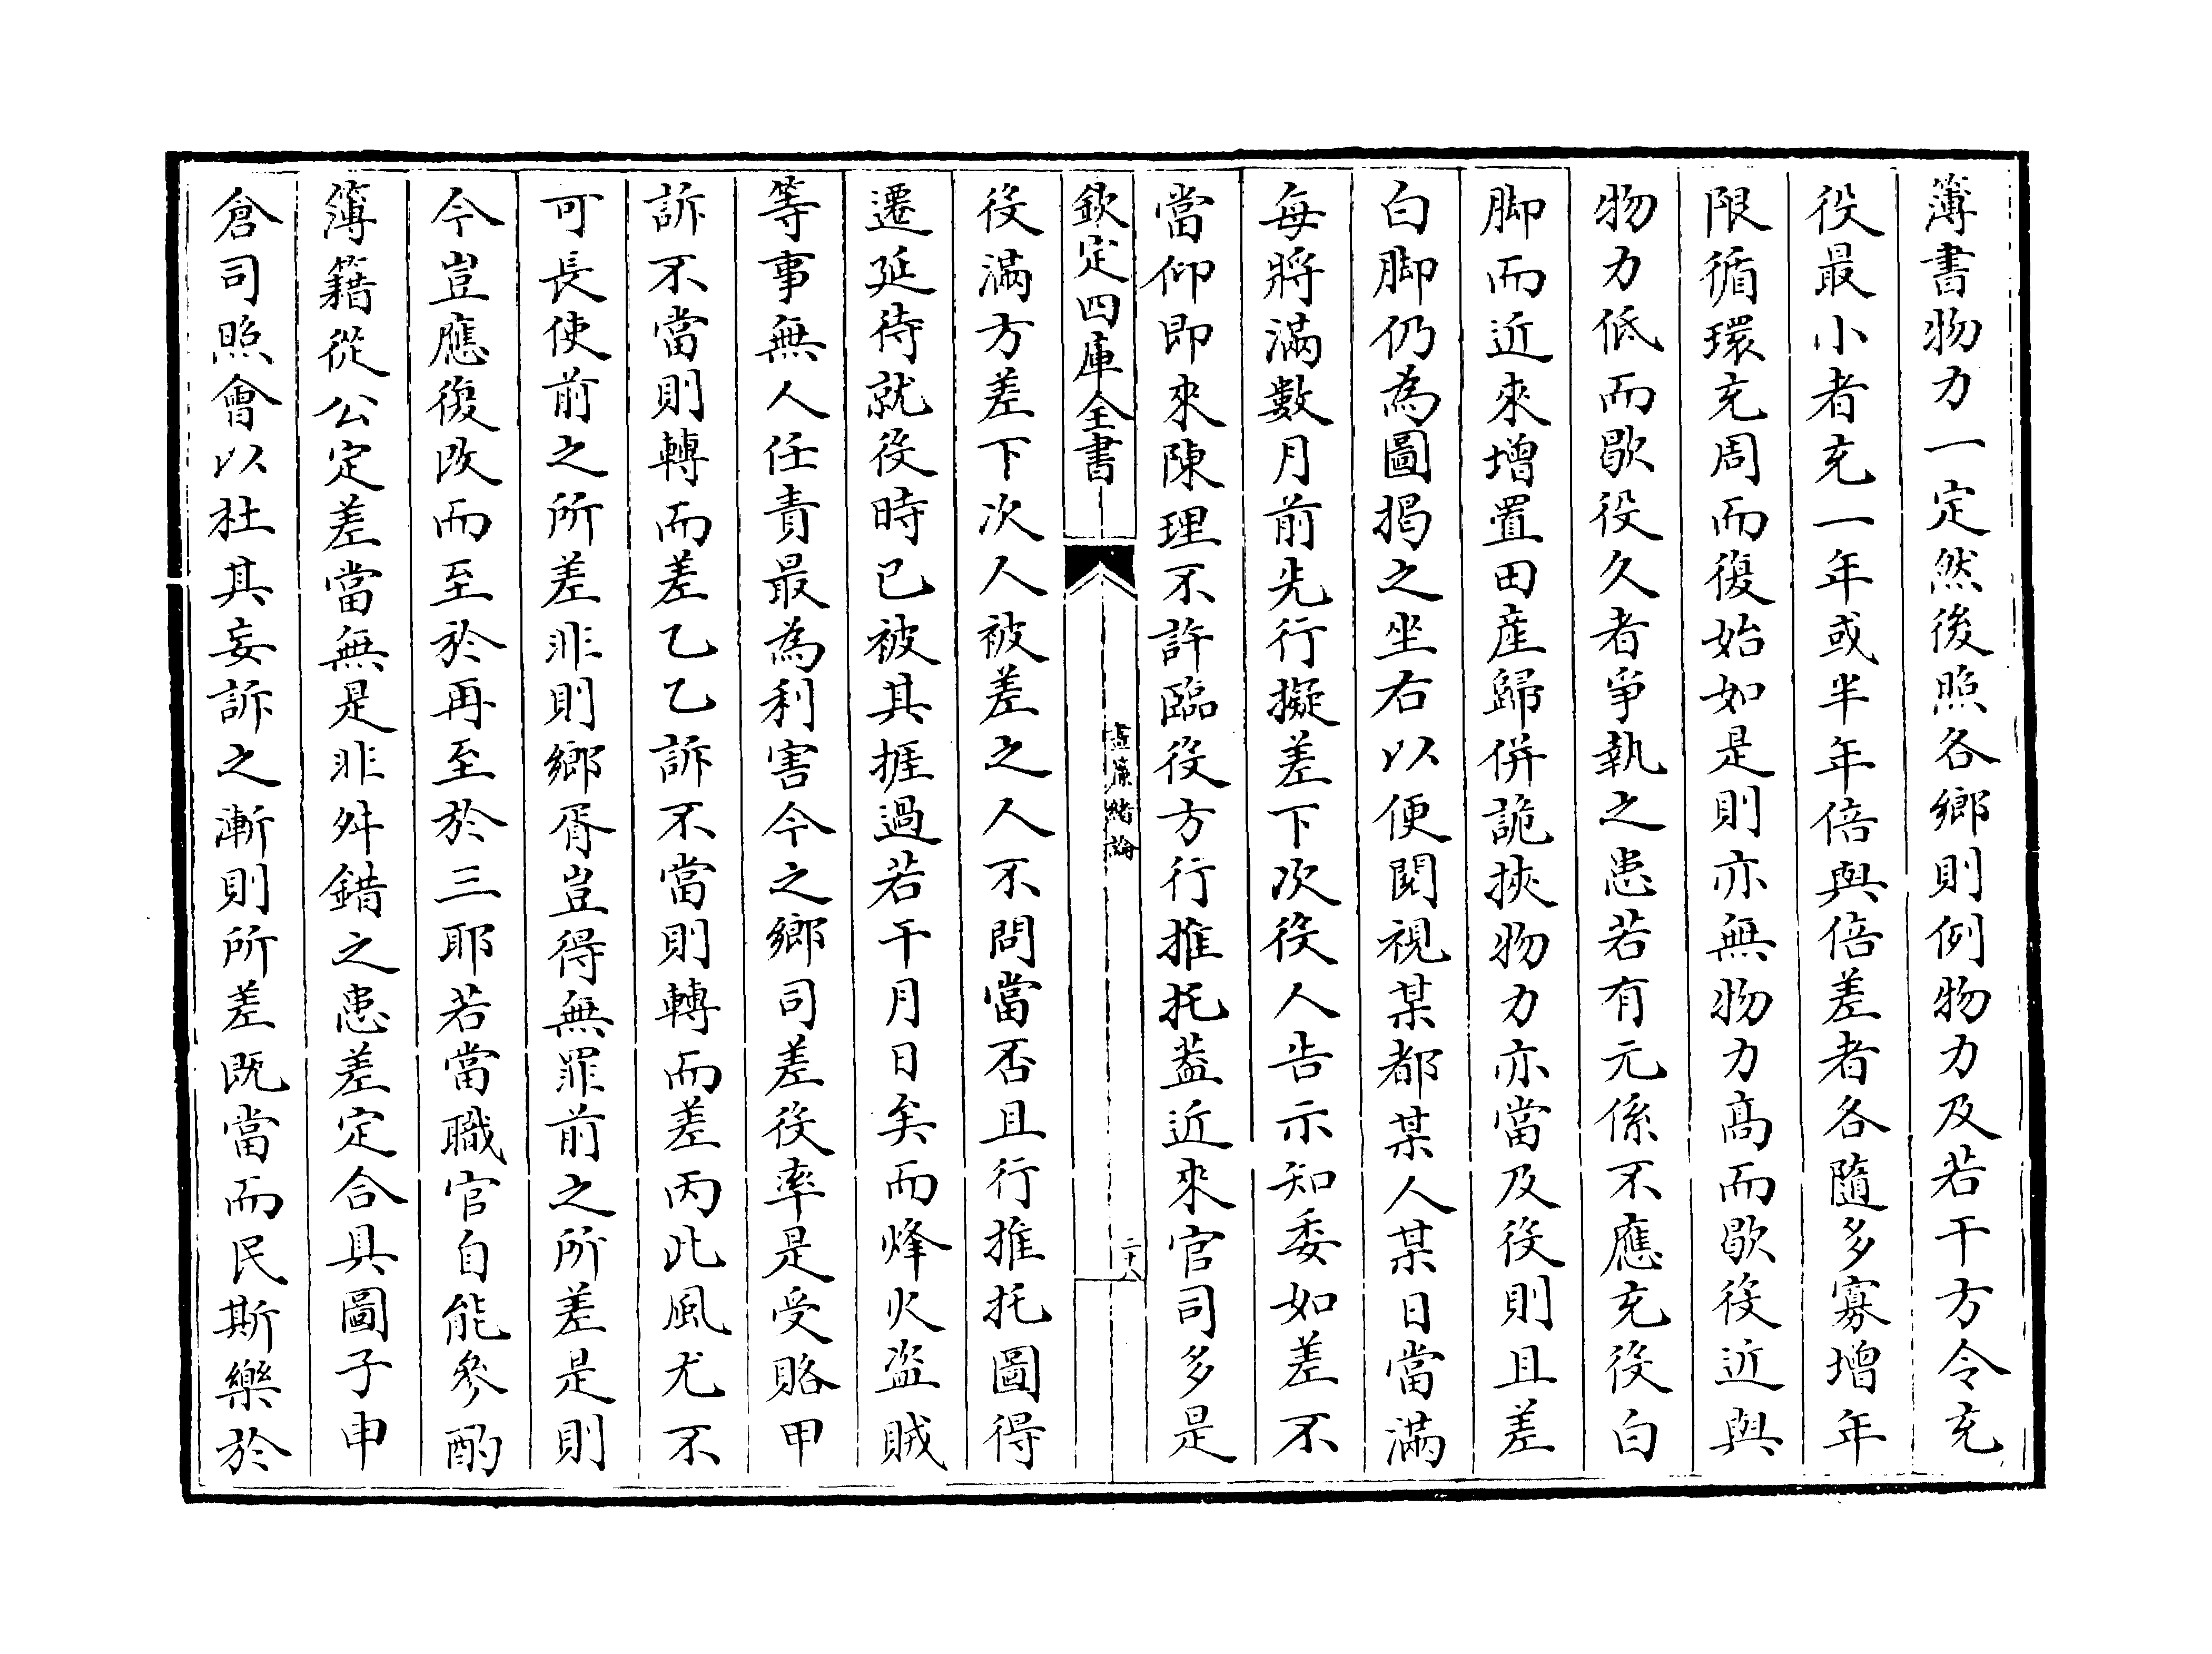 簿書物力一定然後照各鄉則例物力及若干方令充
役最小者充一年或半年倍與倍差者各隨多寡增年
限循環充周而復始如是則亦無物力髙而歇役近與
物力低而歇役久者爭執之患若有元係不應充役白
脚而近來增置田産歸併詭挾物力亦當及役則且差
白脚仍為圖揭之坐右以便閱視某都某人某日當滿
每將滿數月前先行擬差下次役人告示知委如差不
當仰即來陳理不許臨役方行推托葢近來官司多是
欽定四庫全書
晝簾緒論
二十八
役滿方差下次人被差之人不問當否且行推托圖得
遷延待就役時已被其捱過若干月日矣而烽火盗賊
等事無人任責最為利害今之鄉司差役率是受賂甲
訴不當則轉而差乙乙訴不當則轉而差丙此風尤不
可長使前之所差非則鄉胥豈得無罪前之所差是則
今豈應復改而至於再至於三耶若當職官自能參酌
簿籍從公定差當無是非舛錯之患差定合具圖子申
倉司照會以杜其妄訴之漸則所差既當而民斯樂於